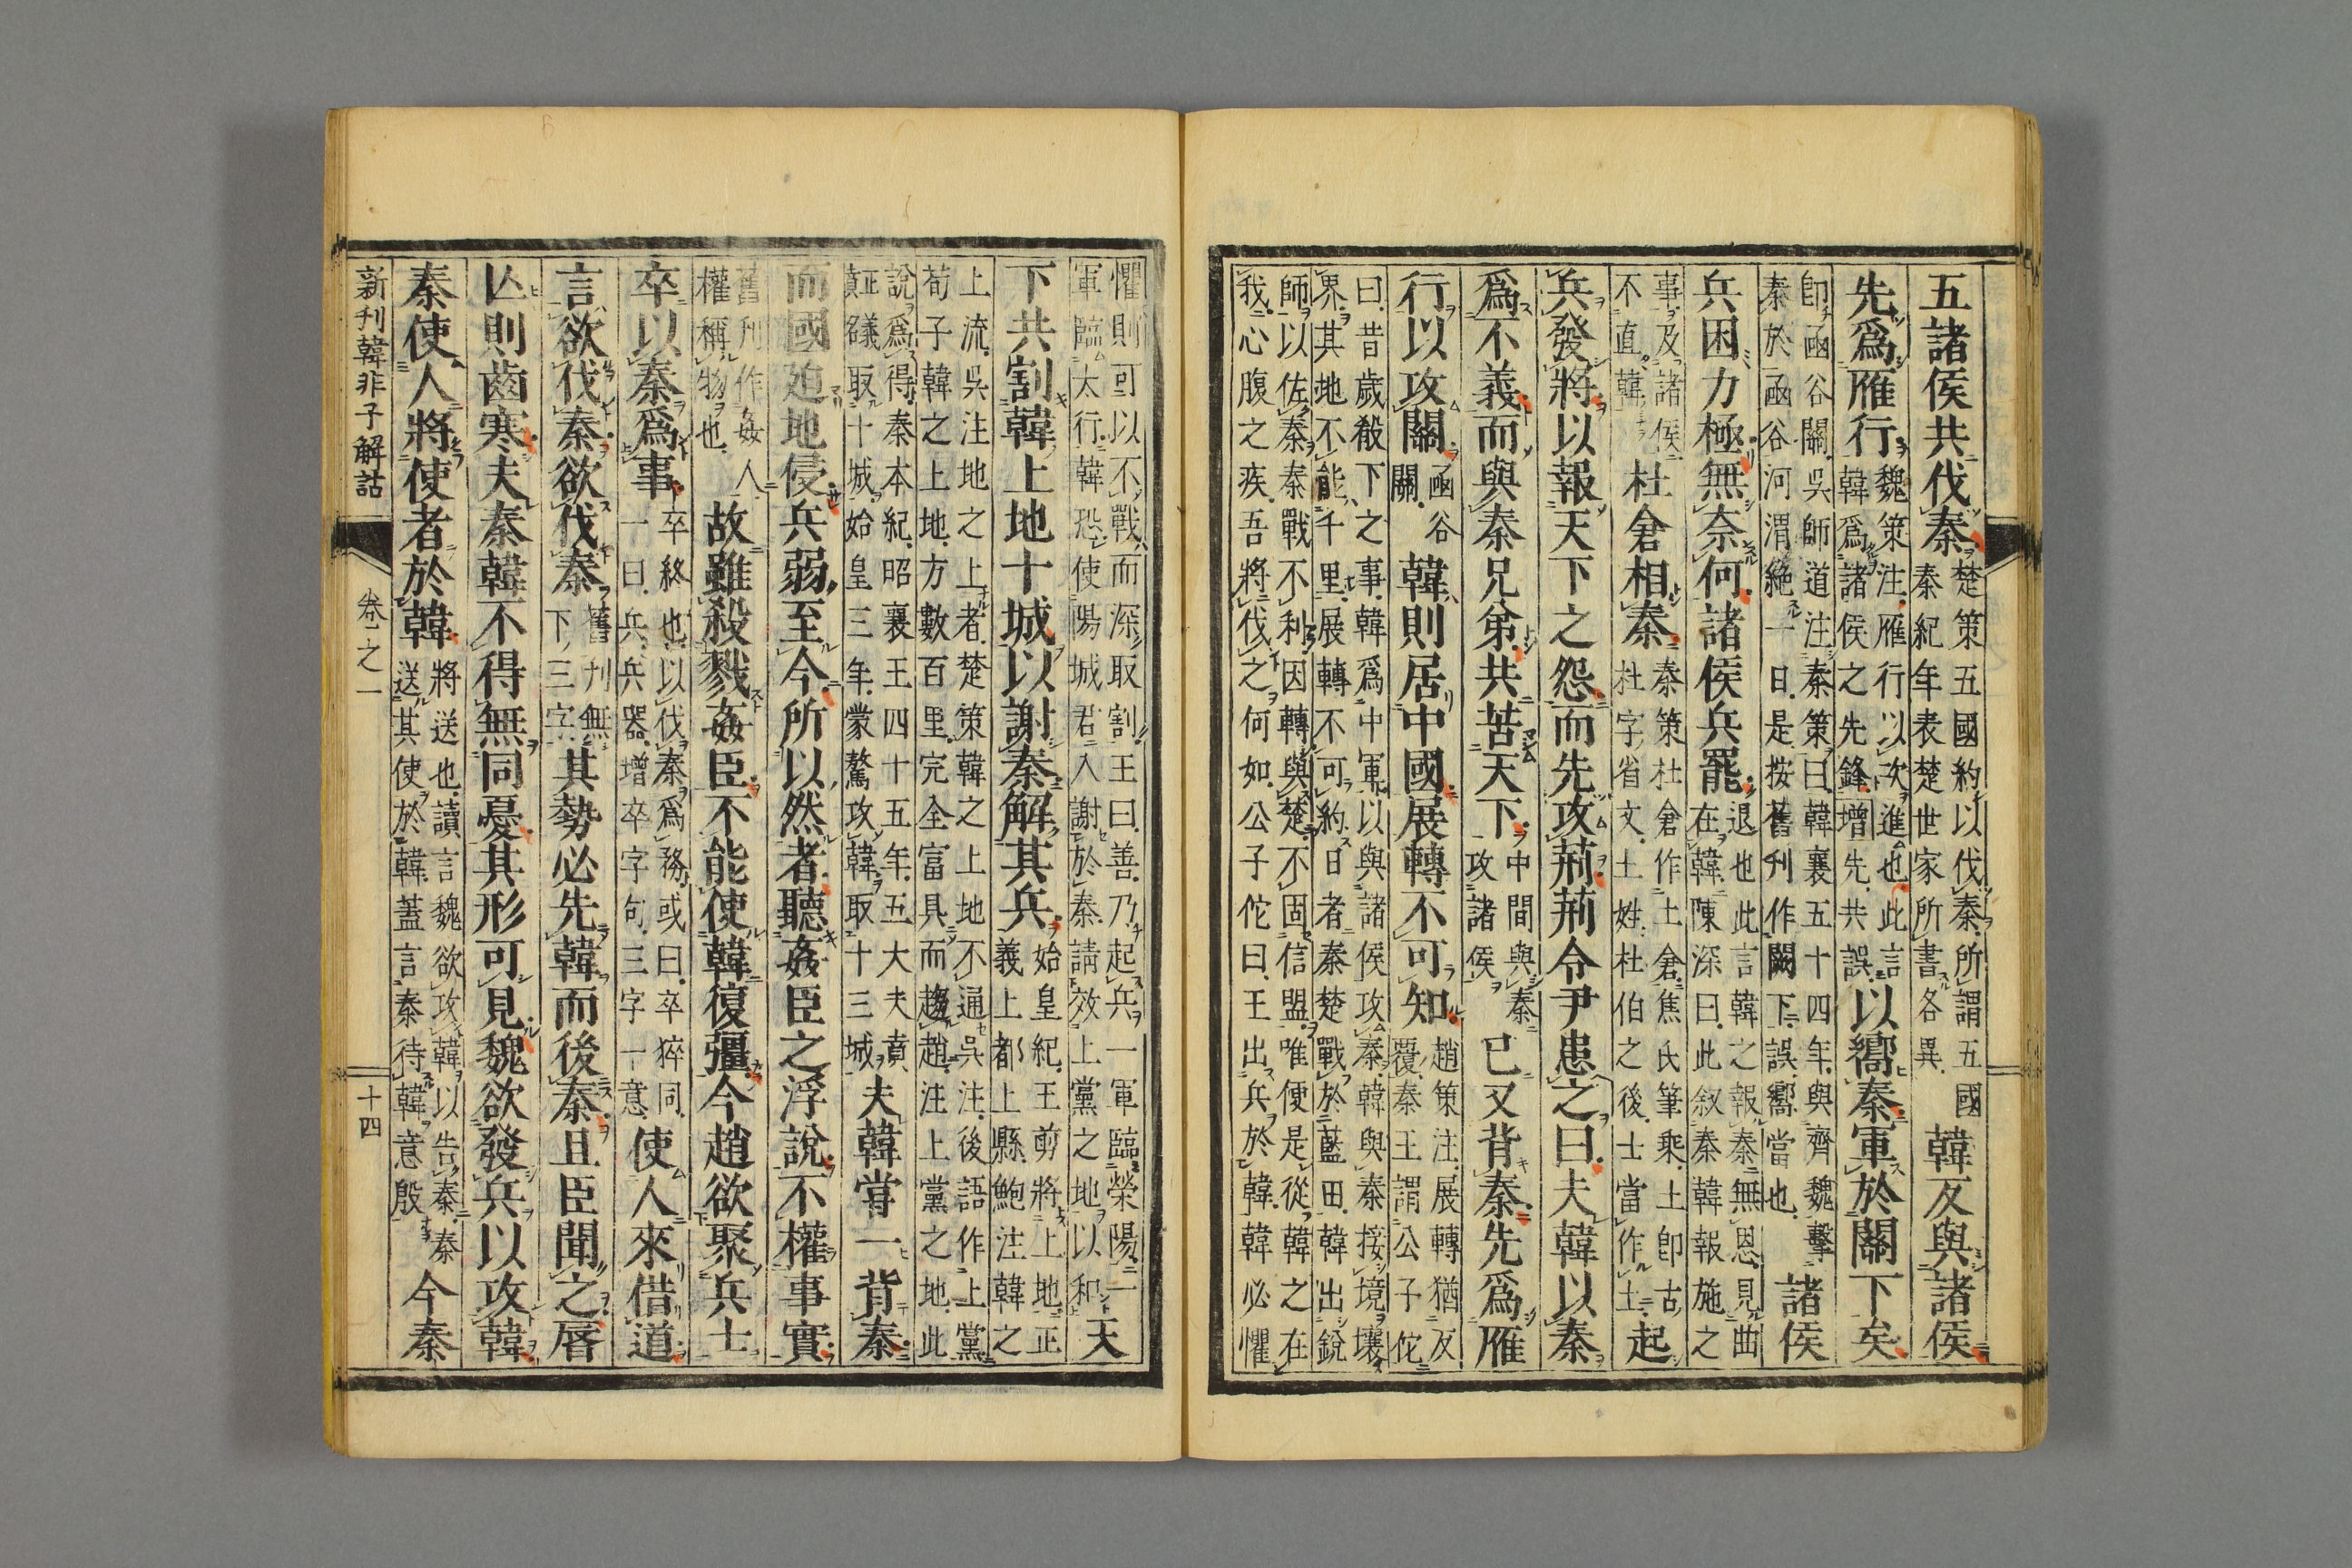 五諸侯共伐秦楚策五國約以伐秦所謂五國秦紀年表楚世家所書各異韓反與諸侯
先爲雁行魏策注雁行以次進也此言韓爲諸侯之先鋒增先共誤以嚮秦軍於關下矣
卽函谷關吳師道注秦策曰韓襄五十四年與齊魏擊秦於函谷河渭絶一日是按舊刊作闕下誤嚮當也諸侯
兵困力極無奈何諸侯兵罷退也此言韓之報秦無恩見曲在韓陳深曰此敘秦韓報施之
事及諸侯不直韓杜倉相秦秦策杜倉作土倉焦氏筆乘土卽古杜字省文土姓杜伯之後士當作土起
兵發將以報天下之怨而先攻荊荊令尹患之曰夫韓以秦
爲不義而與秦兄弟共苦天下中間與秦攻諸侯已又背秦先爲雁
行以攻關函谷關韓則居中國展轉不可知趙策注展轉猶反覆秦王謂公子佗
曰昔歲殽下之事韓爲中軍以與諸侯攻秦韓與秦接境壤界其地不能千里展轉不可約日者秦楚戰於藍田韓出銳
師以佐秦秦戰不利因轉與楚不固信盟唯便是從韓之在我心腹之疾吾將伐之何如公子佗曰王出兵於韓韓必懼
懼則可以不戰而深取割王曰善乃起兵一軍臨滎陽一軍臨太行韓恐使陽城君入謝於秦請效上黨之地以和天
下共割韓上地十城以謝秦解其兵始皇紀王剪將上地正義上都上縣鮑注韓之
上流吳注地之上者楚策韓之上地不通吳注後語作上黨荀子韓之上地方數百里完全富具而趨趙注上黨之地此
說爲得秦本紀昭襄王四十五年五大夫賁攻韓取十城始皇三年蒙驁攻韓取十三城夫韓嘗一背秦
而國迫地侵兵弱至今所以然者聽姦臣之浮說不權事實
舊刊作姦人權稱物也故雖殺戮姦臣不能使韓復彊今趙欲聚兵士
卒以秦爲事卒終也以伐秦爲務或曰卒猝同一曰兵兵器增卒字句三字一意使人來借道
言欲伐秦欲伐秦舊刊無下三字其勢必先韓而後秦且臣聞之脣
亾則齒寒夫秦韓不得無同憂其形可見魏欲發兵以攻韓
秦使人將使者於韓將送也讀言魏欲攻韓以告秦秦送其使於韓蓋言秦待韓意殷今秦
新刊韓非子解詁
卷之一
十四